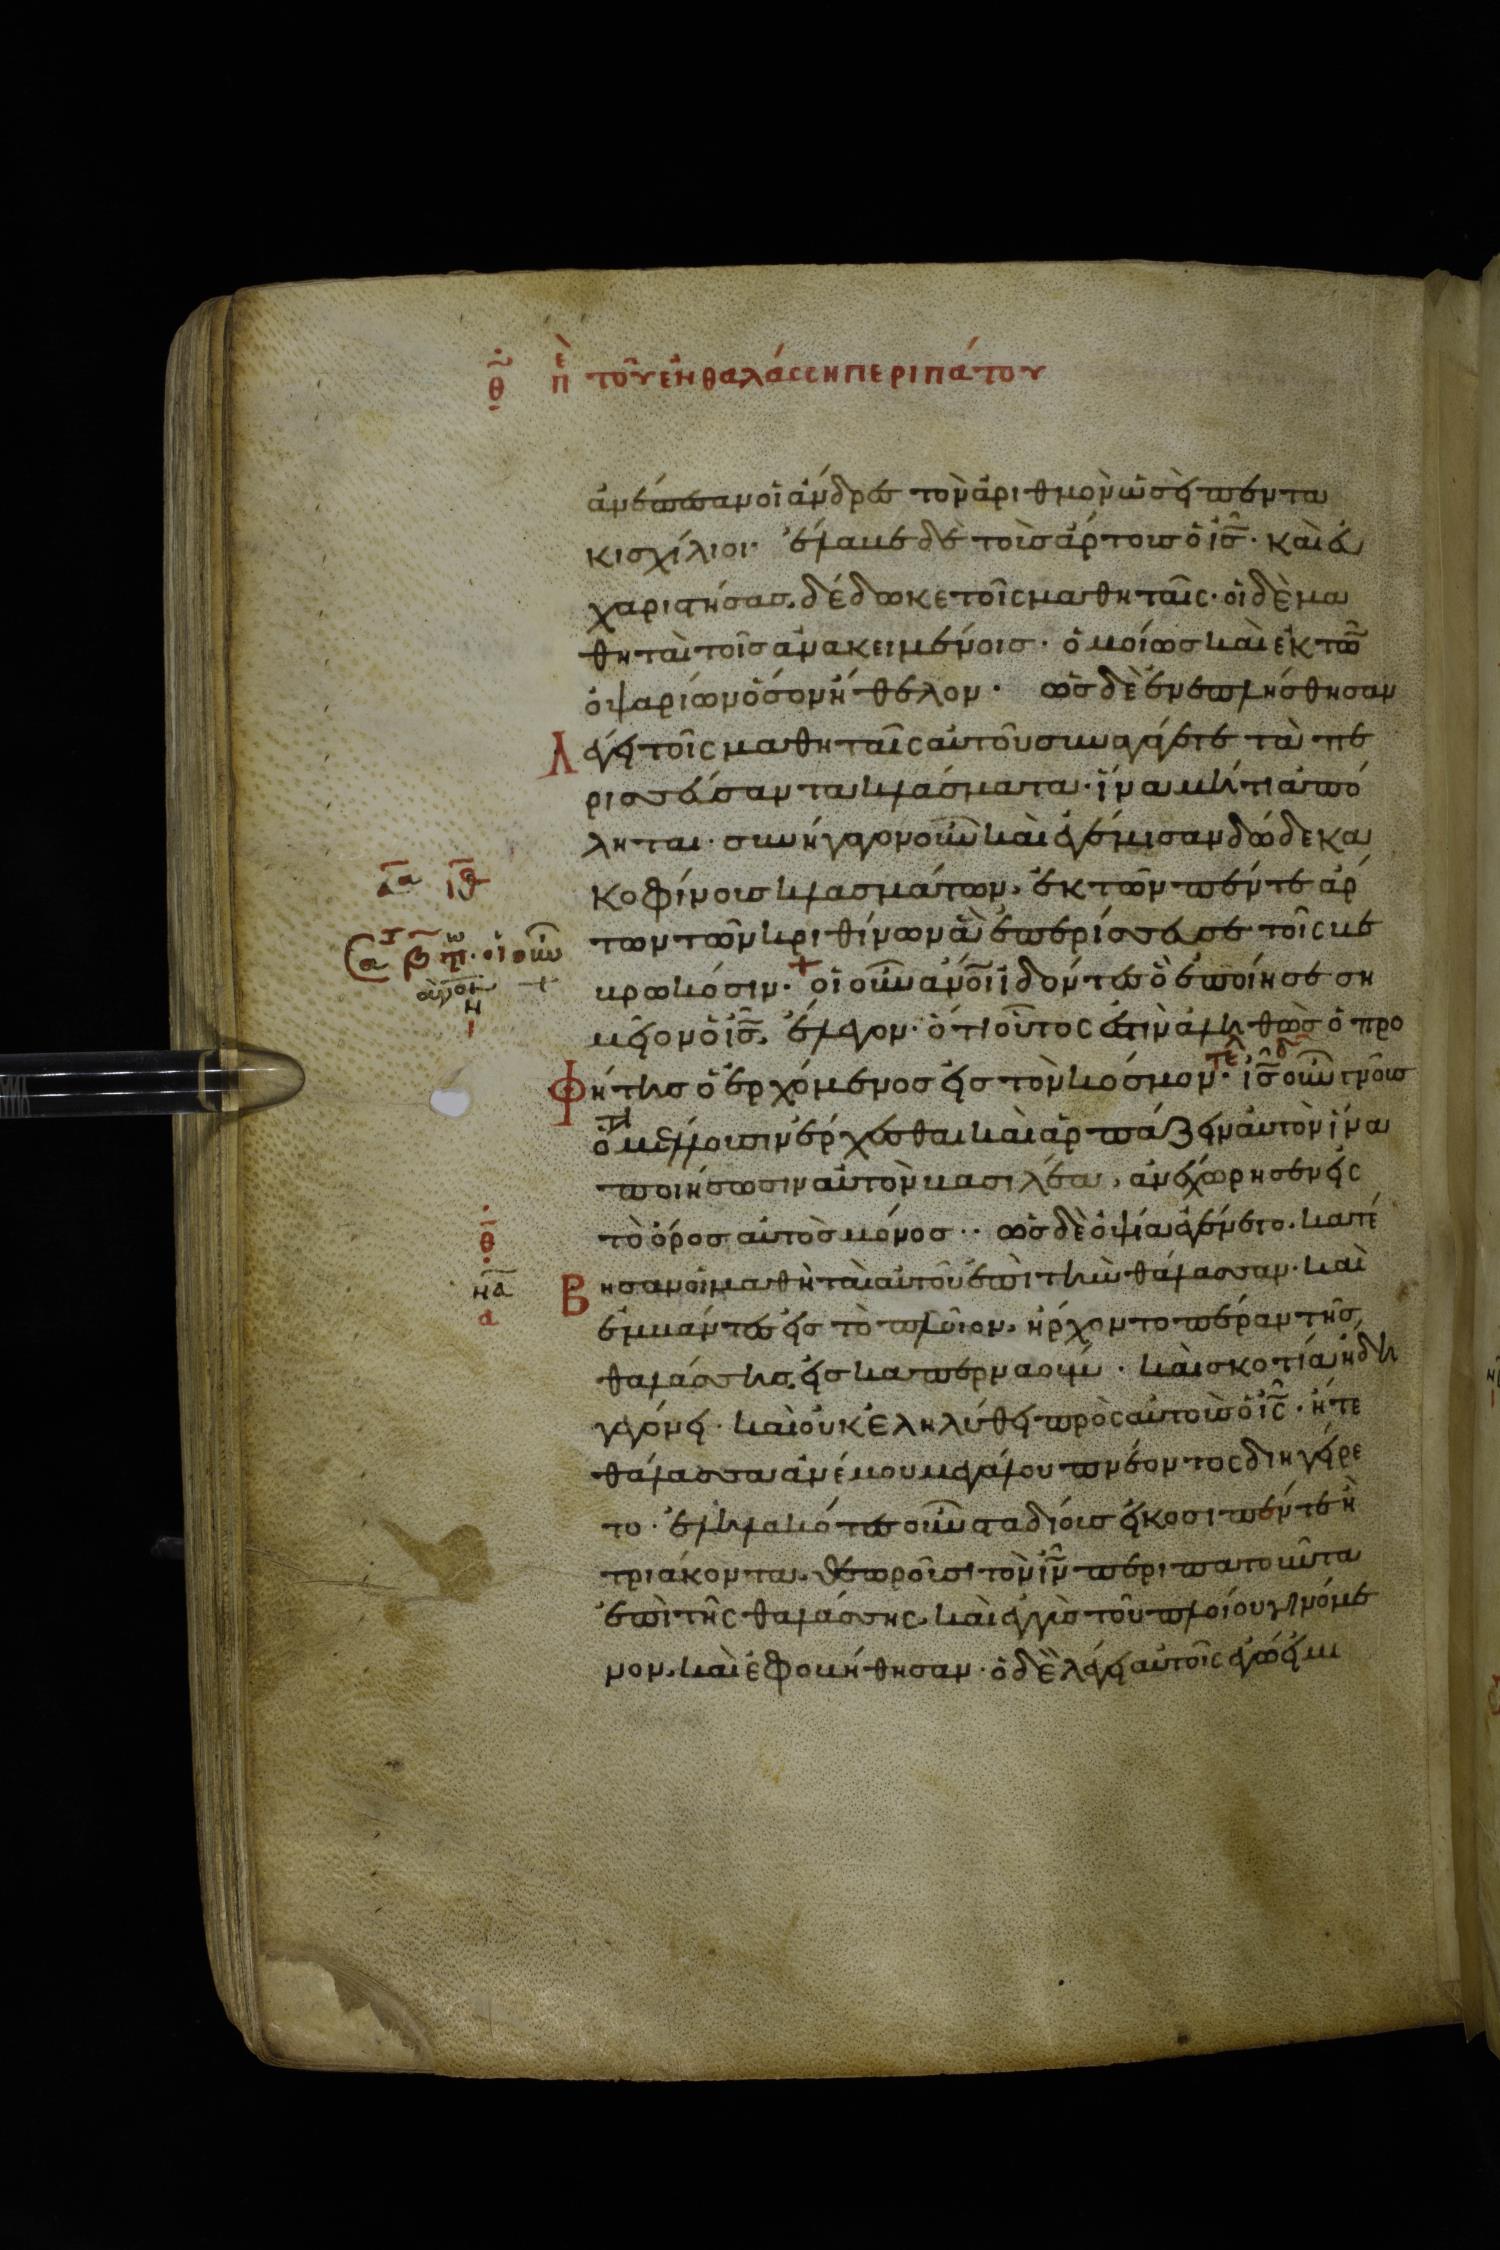 θ̄ πὲ τοῦ ἐν θαλάσση περιπάτου
ἀνέπεσαν οἱ ἄνδρες τὸν ἀριθμὸν ὡσεὶ πεντα
κισχίλιοι· ἔλαβε δὲ τοὺς ἄρτους ὁ ι̅ς̅· καὶ εὐ
χαριστήσας, δέδωκε τοῖς μαθηταῖς· οἱ δὲ μα
θηταὶ τοῖς ἀνακειμένοις· ὁμοίως καὶ ἐκ τῶ̅
ὀψαρίων ὅσον ἤθελον· ὡς δὲ ἐνεπλήσθησαν
λέγει τοῖς μαθηταῖς αὐτοῦ συναγάγετε τὰ πε
ρισσεύσαντα κλάσματα· ἵνα μή τι ἀπό
ληται· συνήγαγον οὖν καὶ ἐγέμισαν δώδεκα
κοφίνους κλασμάτων, ἐκ τῶν πέντε ἄρ
των τῶν κριθίνων ἃ ἐπερίσσευσε τοῖς βε
βρωκόσιν· + οἱ οὖν ἄνο̅ι ἰδόντες ὃ ἐποίησε ση
μεῖον ὁ ι̅ς̅, ἔλεγον· ὅτι οὗτος ἐστὶν ἀληθῶς ὁ προ
φήτης ὁ ἐρχόμενος εἰς τὸν κόσμον· ι̅ς̅ οὖν γνοὺς
ὅτι μέλλουσιν ἔρχεσθαι καὶ ἁρπάζειν αὐτὸν ἵνα
ποιήσωσιν αὐτὸν βασιλέα, ἀνεχώρησεν εἰς
τὸ ὄρος αὐτὸς μόνος·· ὡς δὲ ὀψία ἐγένετο, κατέ
βησαν οἱ μαθηταὶ αὐτοῦ ἐπὶ τὴν θάλασσαν· καὶ
ἐμβάντες εἰς τὸ πλοῖον, ἤρχοντο πέραν τῆς
θαλάσσης, εἰς καπερναούμ· καὶ σκοτία ἤδη
γεγόνει· καὶ οὐκ ἐληλύθει πρὸς αὐτοὺς ὁ ι̅ς̅· ἥ τε
θάλασσα ἀνέμου μεγάλου πνέοντος διηγείρε
το· ἐληλακότες οὖν σταδίους εἴκοσι πέντε ἢ
τριάκοντα, θεωροῦσι τὸν ι̅ν̅ περιπατοῦντα
ἐπὶ τῆς θαλάσσης, καὶ ἐγγὺς τοῦ πλοίου γινόμε
νον, καὶ ἐφοβήθησαν· ὁ δὲ λέγει αὐτοῖς ἐγώ εἰμι